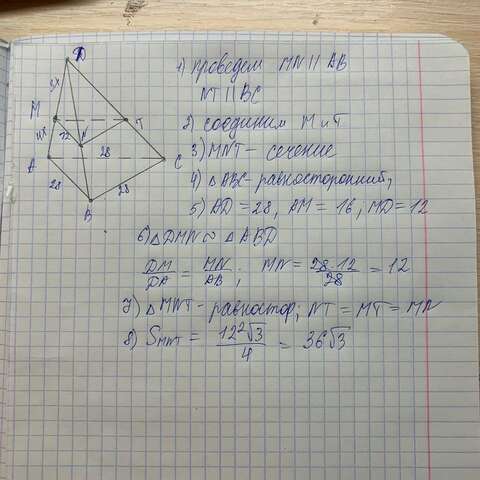 D
3x
M
4x
12
N
T
A
28
C
28
28
B
1) проведем MN || AB
NT || BC
2) соединим M и T
3) MNT - сечение
4) △ABC - равносторонний;
5) AD = 28, AM = 16, MD = 12
6) △DMN ∾ △ABD
DM/DA = MN/AB; MN = 28·12/28 = 12
7) △MNT - равностор; NT = MT = MN
8) Sмnт = 12²√3/4 = 36√3